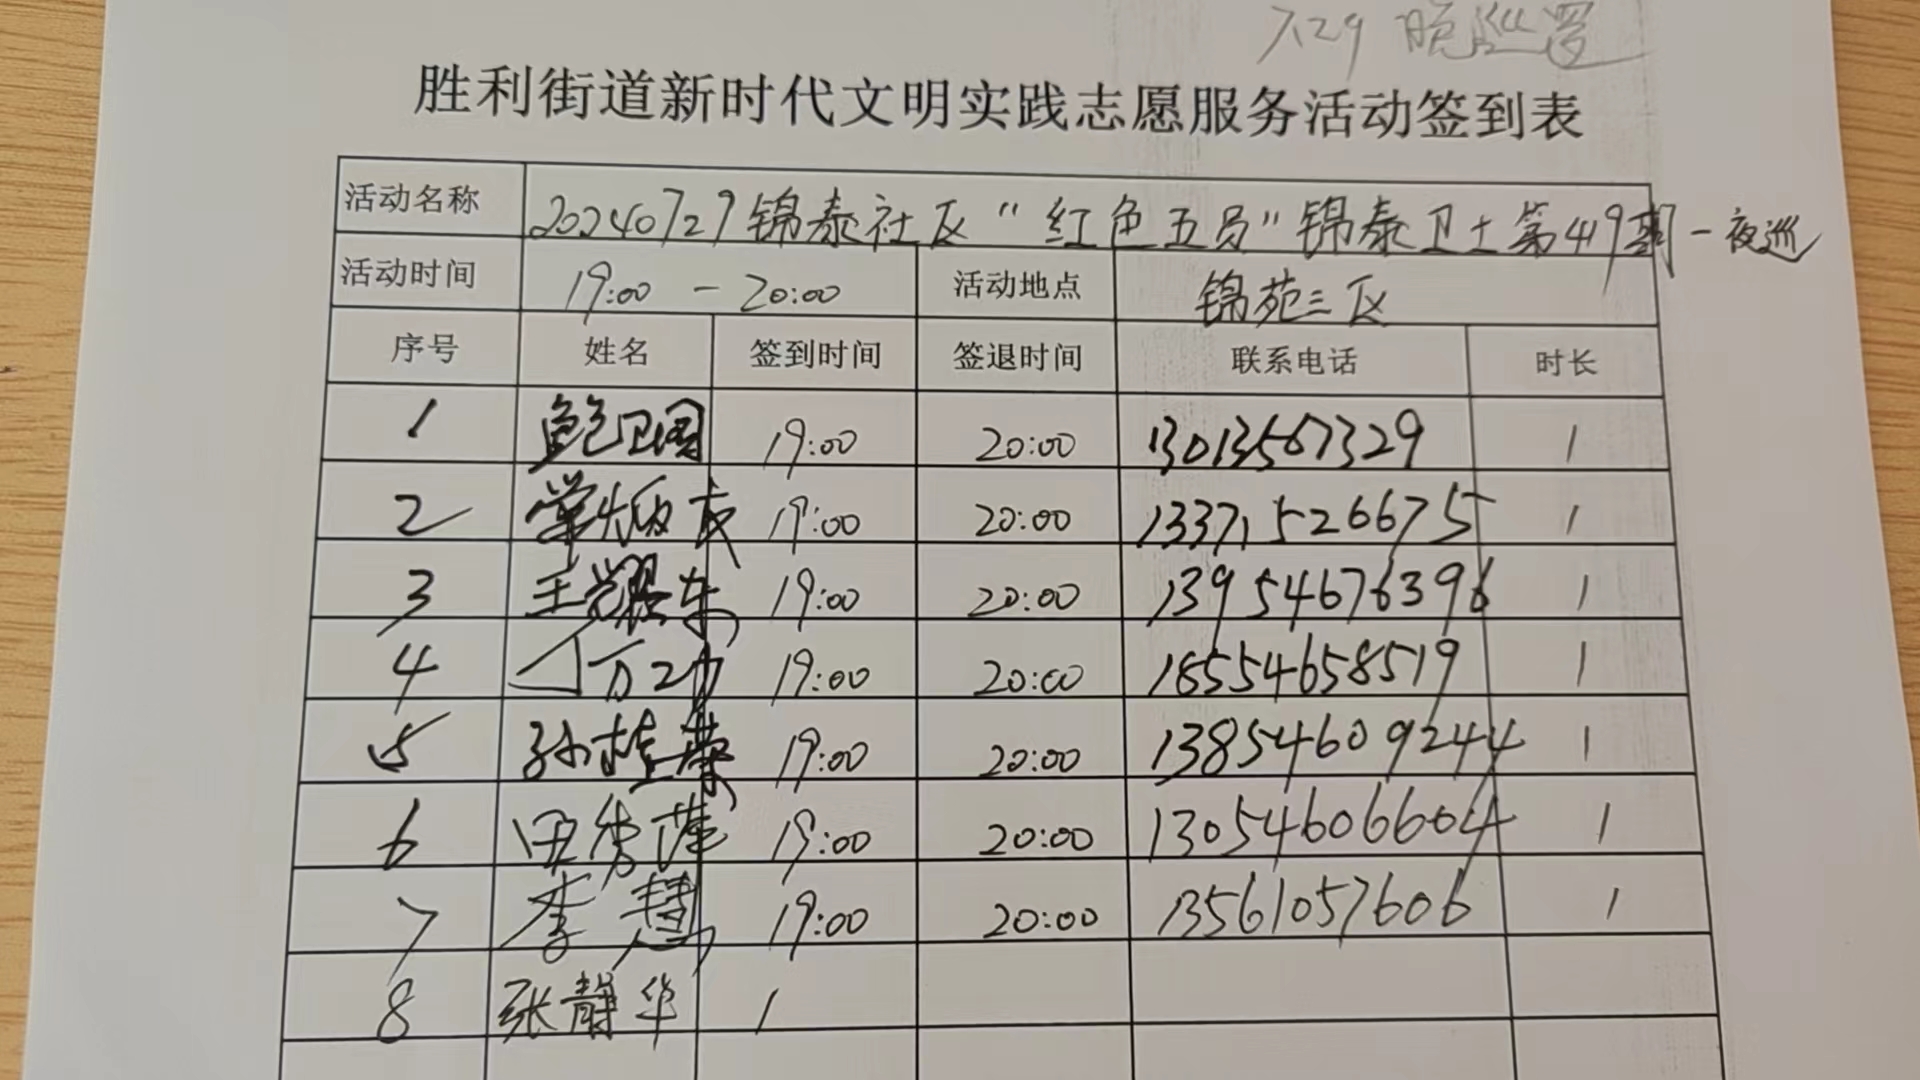 7.29 晚巡逻
胜利街道新时代文明实践志愿服务活动签到表
活动名称 20240729锦泰社区“红色五员”锦泰卫士第419期-夜巡
活动时间 19:00 - 20:00 活动地点 锦苑三区
序号 姓名 签到时间 签退时间 联系电话 时长
1 鲍卫国 19:00 20:00 13013567329 1
2 19:00 20:00 13371526675 1
3 王耀东 19:00 20:00 13954676396 1
4 丁万功 19:00 20:00 18554658519 1
5 孙桂荣 19:00 20:00 13854609244 1
6 田秀莲 19:00 20:00 13054606604 1
7 李慧 19:00 20:00 13561057606 1
8 张静华 1